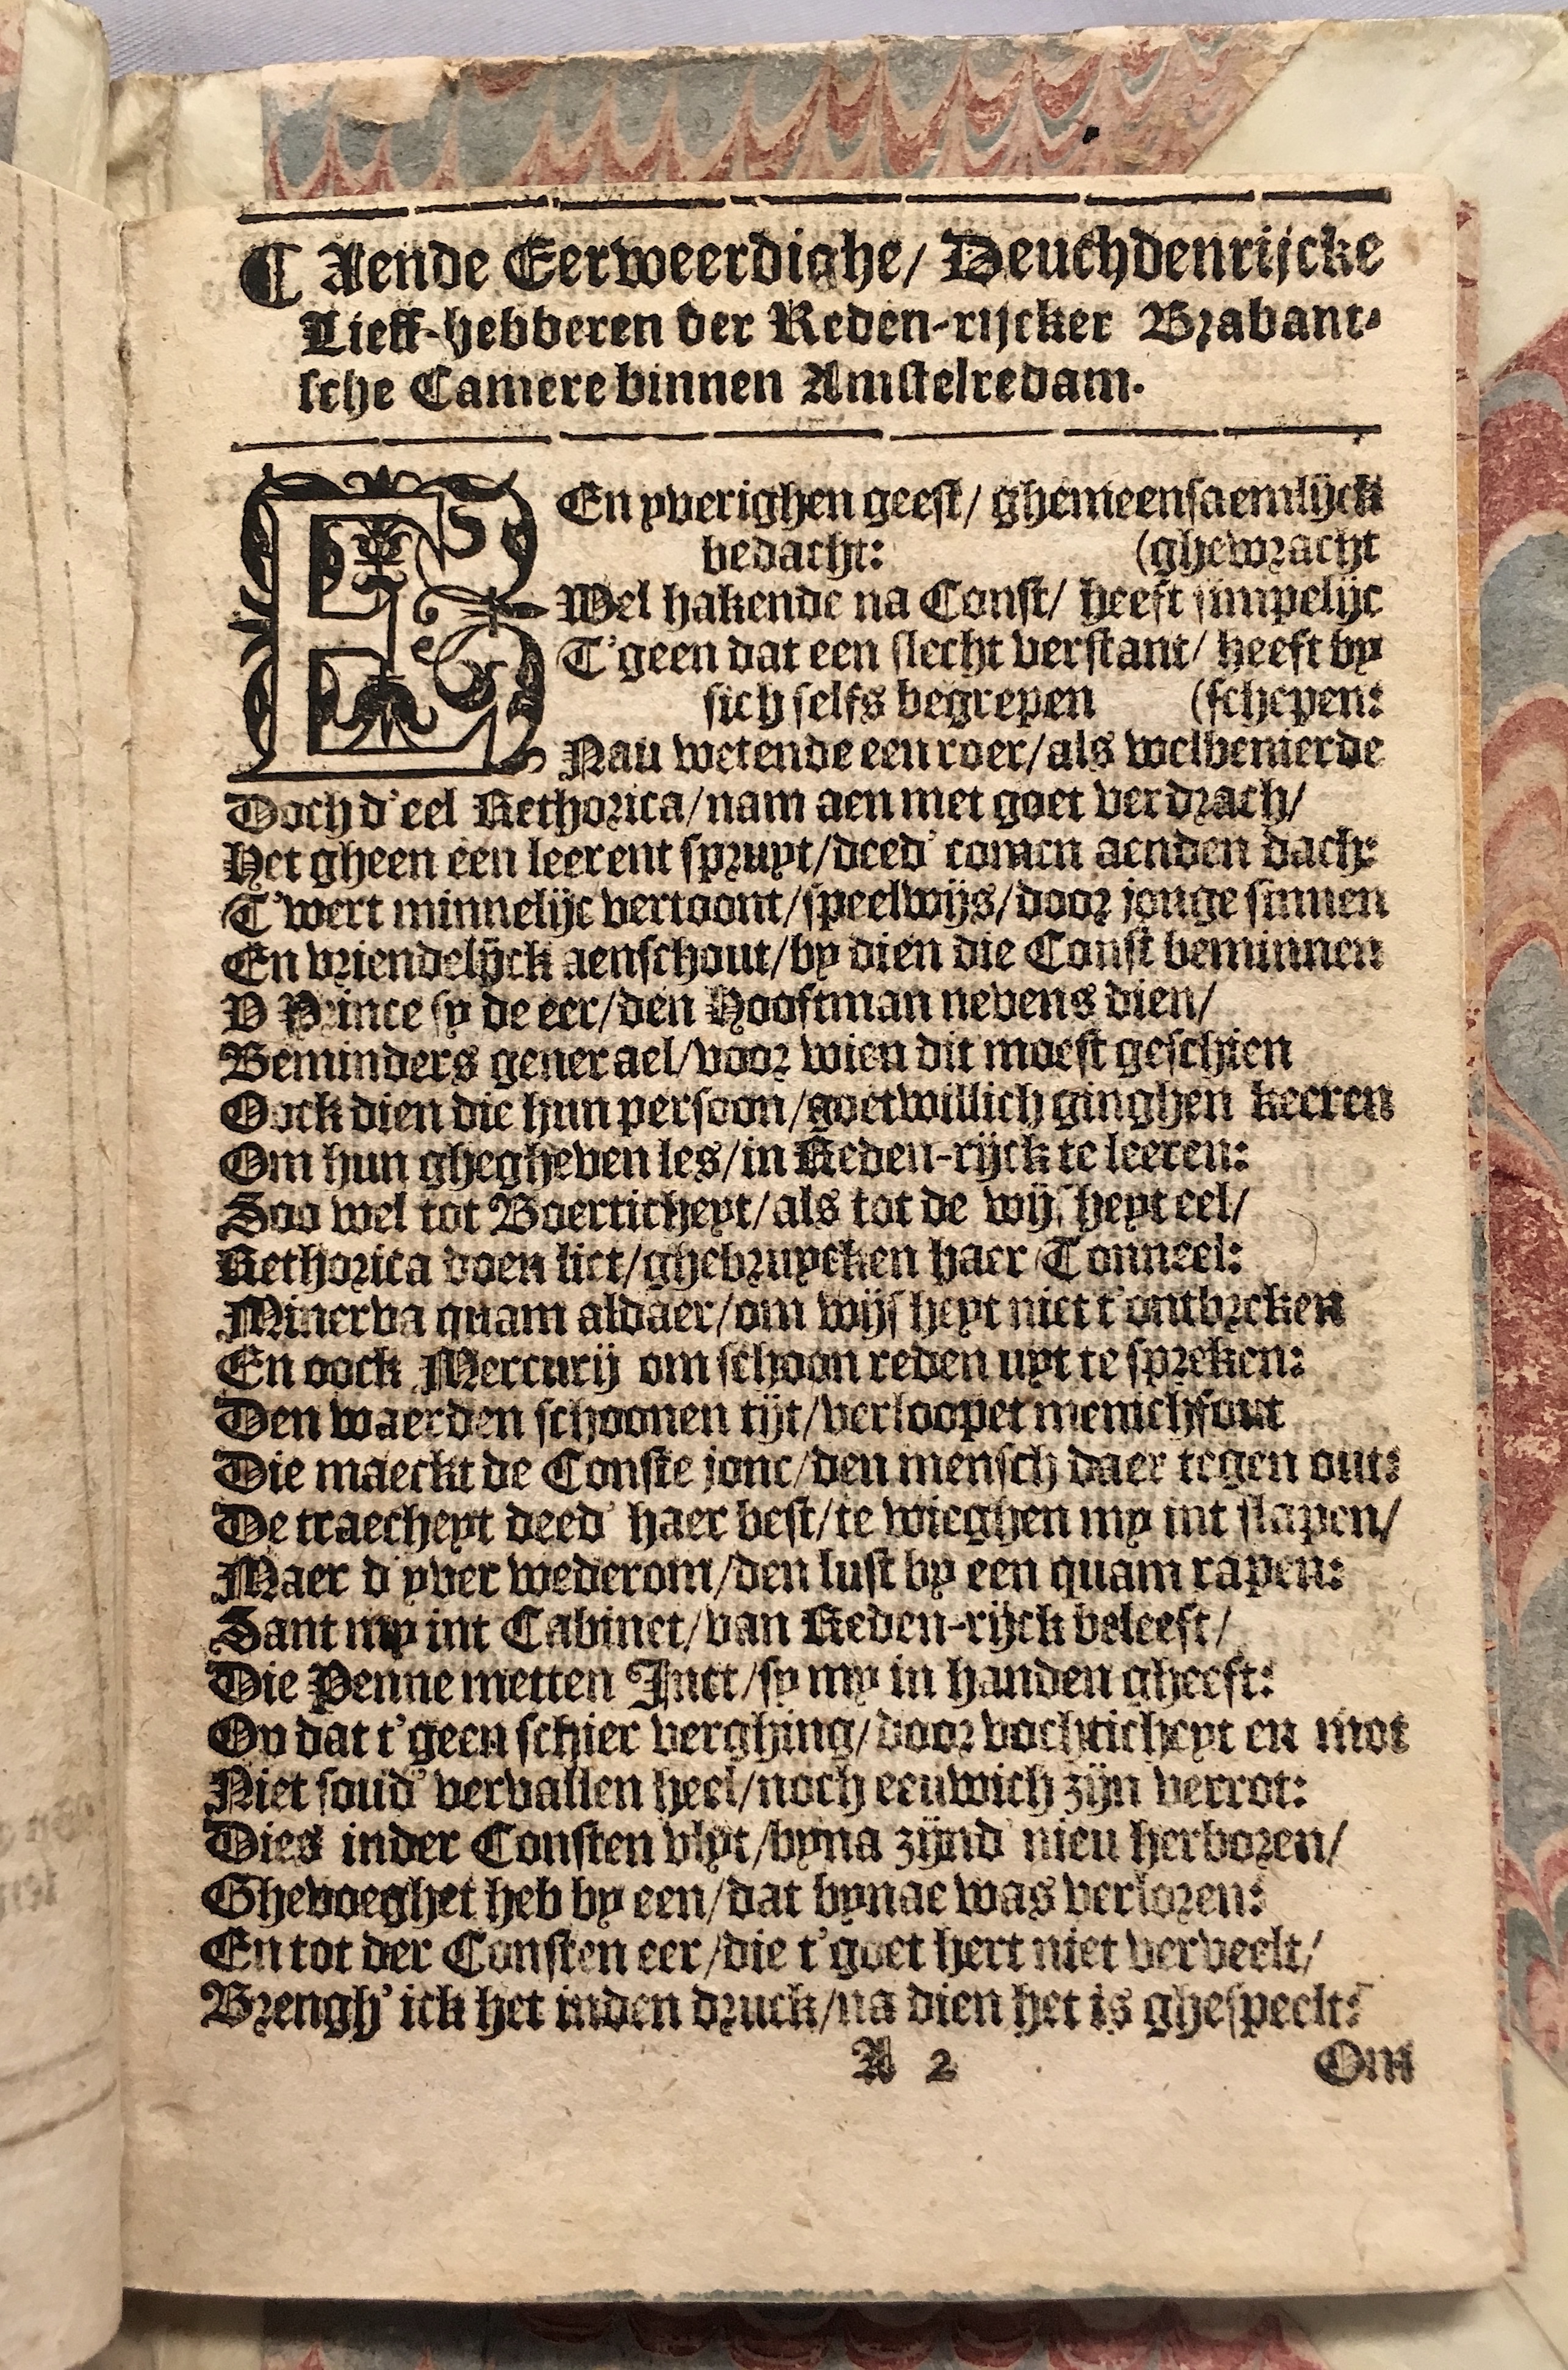 ¶ Aende Eerweerdighe/ Deuchdenrijcke
Lieff-hebberen der Reden-rijcker Brabant-
sche Camere binnen Amstelredam.
EEn yverighen geest/ ghemeensaemlijck
bedacht: (ghewracht
Wel hakende na Const/ heeft simpelijc
T'geen dat een slecht verstant/ heeft by
sich selfs begrepen (schepen:
Nau wetende een roer/als welbenierde
Doch d'eel Rethorica/nam aen met goet verdrach/
Het gheen een leerent spruyt/deed' comen aenden dach:
T'wert minnelijc vertoont/speelwijs/door jonge sinnen
En vriendelijck aenschout/by dien die Const beminnen
V Prince sy de eer/den Hooftman nevens dien/
Beminders generael/voor wien dit moest geschien
Oock dien die hun persoon/goetwillich ginghen keeren
Om hun ghegheven les/in Reden-rijck te leeren:
Soo wel tot Boerticheyt/als tot de wijsheyt eel/
Rethorica doen liet/ghebruycken haer Tonneel:
Minerva quam aldaer/om wijsheyt niet t'ontbreken
En oock Mercurij om schoon reden uyt te spreken:
Den waerden schoonen tijt/verloopet menichfout
Die maeckt de Conste jonc/den mensch daer tegen out:
De traecheyt deed' haer best/te wieghen my int slapen/
Maer d'yver wederom/den lust by een quam rapen:
Sant my int Cabinet/van Reden-rijck beleest/
Die Penne metten Inct/sy my in handen gheeft:
Op dat t'geen schier verghing/door vochticheyt en mot
Niet soud' vervallen heel/noch eeuwich zijn verrot:
Dies inder Consten vlyt/byna zijnd' nieu herboren/
Ghevoeghet heb by een/dat bynae was verloren:
En tot der Consten eer/die t'goet hert niet verveelt/
Brengh' ick het inden druck/na dien het is ghespeelt:
A 2 Om